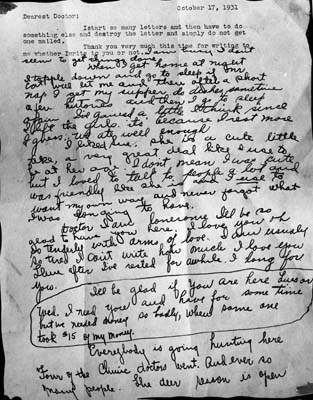 October 17, 1931
Dearest Doctor:
I start so many letters and then have to do
something else and destroy the letter and simply do not get
one mailed.
Thank you very much this time for writing to
me whether I write to you or not. I am sorry I don't
seem to get things done
When I get home at night
I topple down and go to sleep if Dr.
will let me and then after a short
nap I get my supper, do dishes, sometime
a few and then I go to sleep
again. I've gained a little I think since
I left the girls. It's because I rest more
I guess. We ate well enough
I liked She is a cute little
a very great deal like I use to
at her age. I don't mean I was cute
but I loved to talk to people & and
was friendly like she is and I use to
want my own way and never forgot what
I was going to have.
Doctor I am lonesome I'll be so
glad to have you here. I love you oh
so tenfuly with arms of love. I am usually
so tired I can't write how much I love you
Even after I've rested for awhile. I long for
you.
I'll be glad if you are here Tues or
Wed. I need you and have for some time
but we needed money so badly, when some one
took $15 of my money.
Everybody is going hunting here
Four of the Clinic doctors went. And ever so
many people. The deer season is open